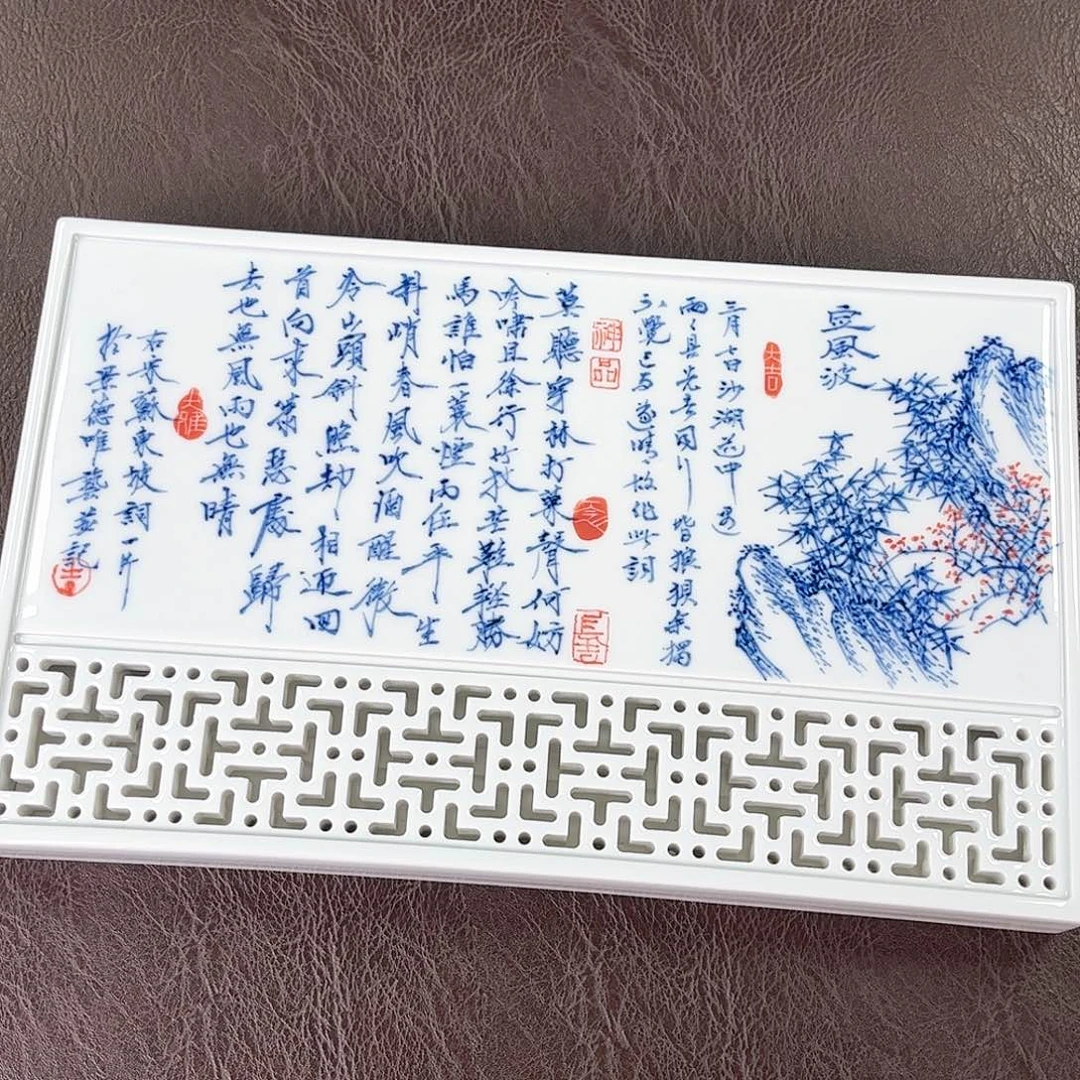 定風波
大吉
三月七日沙湖道中遇
雨〻具先去同行皆狼狽余獨
不覺已而遂晴故作此詞
神品
莫聽穿林打葉聲何妨
吟嘯且徐行竹杖芒鞋輕勝
馬誰怕一蓑煙雨任平生
料峭春風吹酒醒微
冷山頭斜照却〻相迎回
首向來蕭瑟處歸
去也無風雨也無晴
大雅
右录蘇東坡詞一片
於景德唯藝芸記